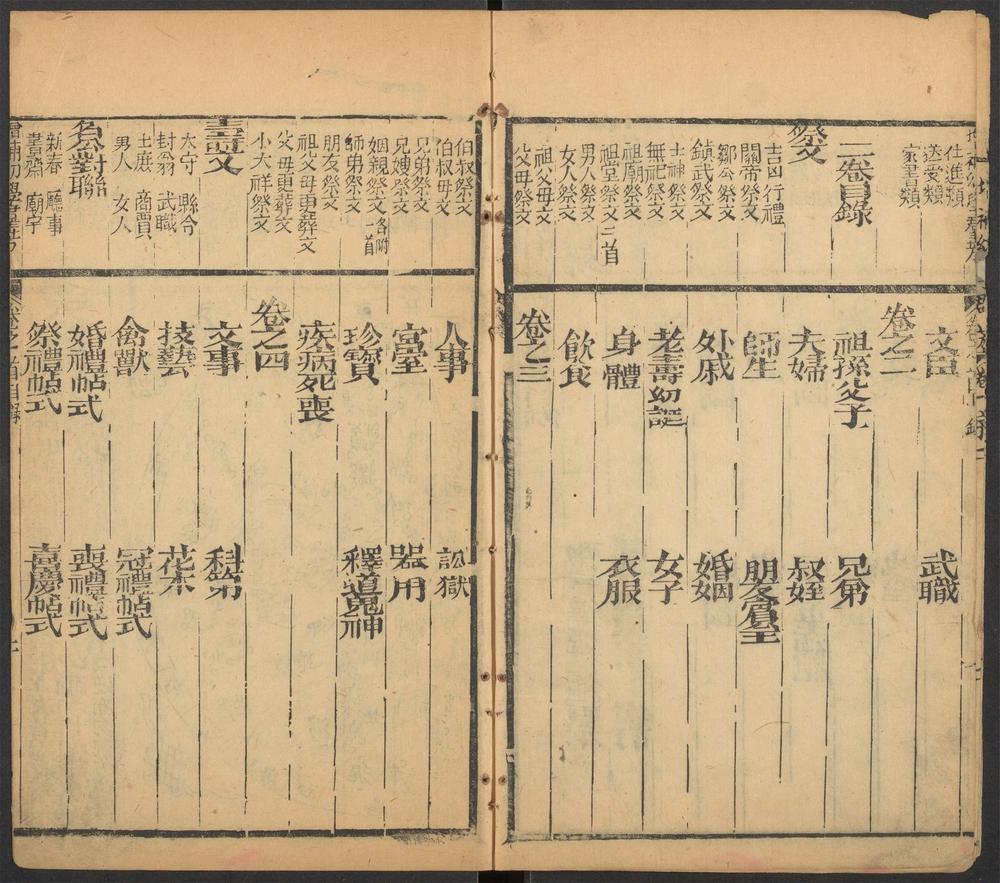 仕進類
送受類
家書類
二卷目錄
祭文
吉凶行禮
關帝祭文
鄒公祭文
鎮武祭文
土神祭文
無祀祭文
祖廟祭文
祖堂祭文二首
男人祭文
女人祭文
祖父母文
父母祭文
文臣
武職
卷之二
祖孫父子
兄弟
夫婦
叔姪
師生
朋友賓主
外戚
婚姻
老壽幼誕
女子
身體
衣服
飲食
卷之三
伯叔祭文
伯叔母文
兄弟祭文
兄嫂祭文
姻親祭文各附一首
師弟祭文
朋友祭文
祖父母更葬文
父母更葬文
小大祥祭文
壽文
太守
縣令
封翁
武職
士庶
商賈
男人
女人
各公對聯
新春
廳事
書齋
廟宇
人事
訟獄
宮室
器用
珍寶
釋道鬼神
疾病死喪
卷之四
文事
科第
技藝
花木
禽獸
冠禮帖式
婚禮帖式
喪禮帖式
祭禮帖式
喜慶帖式